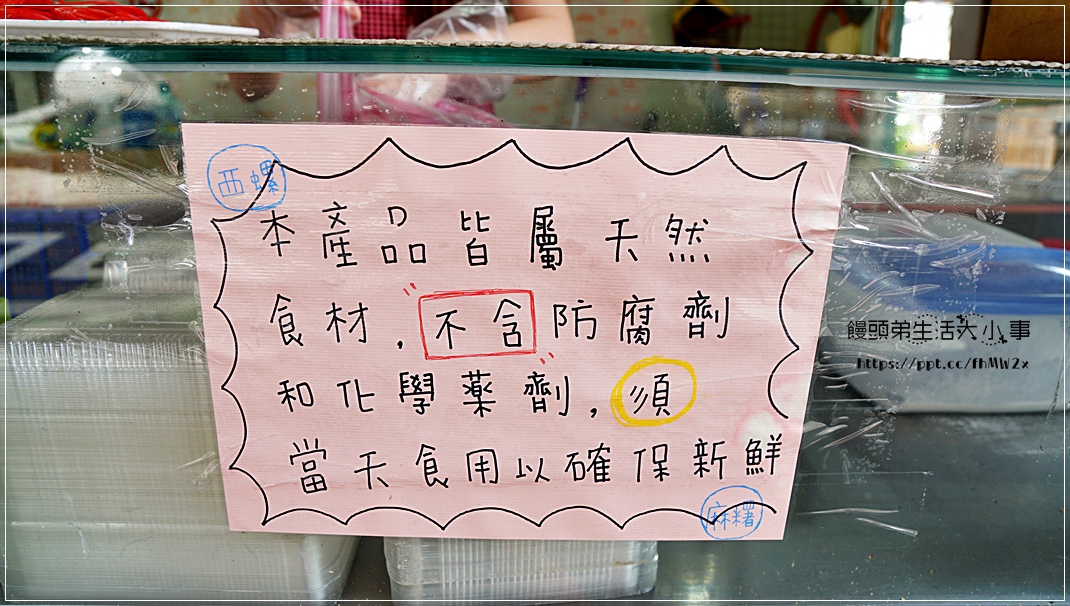 西螺
本產品皆屬天然
食材,"不含"防腐劑
和化學藥劑,須
當天食用以確保新鮮
麻糬
饅頭弟生活大小事
https://ppt.cc/fhMW2x